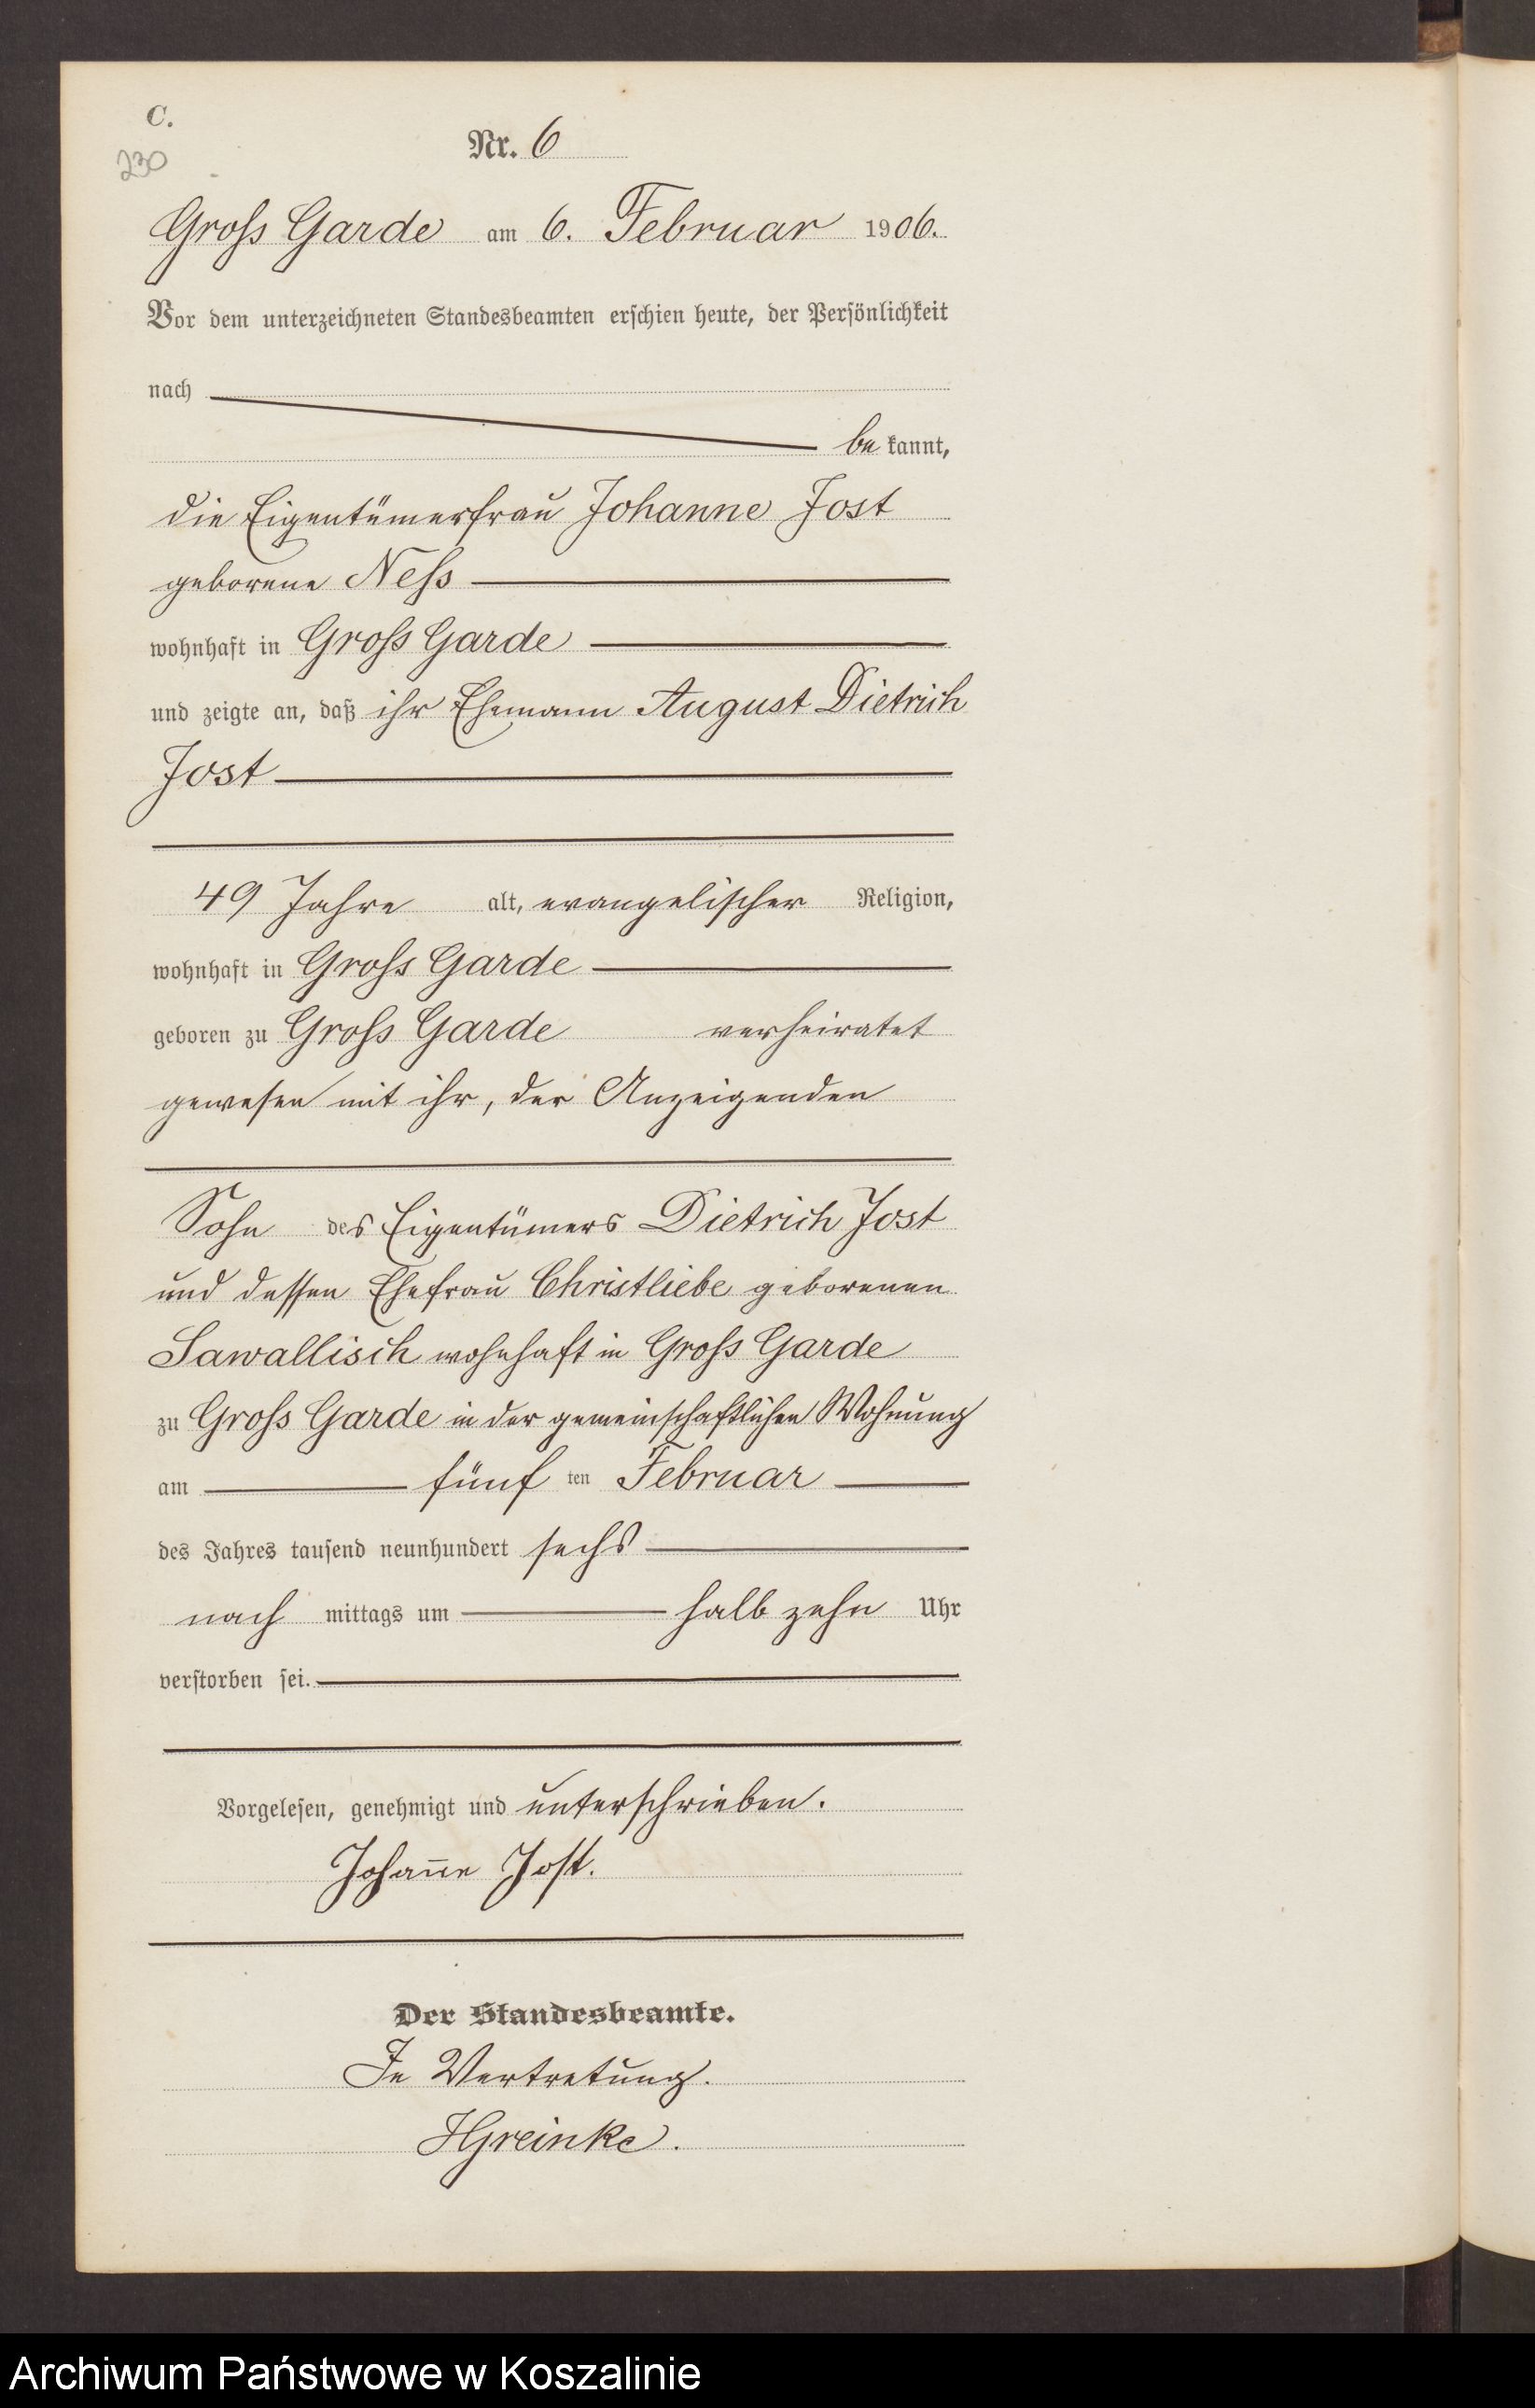 C.
230
Nr. 6
Gross Garde am 6. Februar 1906.
Vor dem unterzeichneten Standesbeamten erschien heute, der Persönlichkeit
nach
be kannt,
die Eigentümerfrau Johanne Jost
geborene Ness
wohnhaft in Gross Garde
und zeigte an, daß ihr Ehemann August Dietrich
Jost
49 Jahre alt, evangelischer Religion,
wohnhaft in Gross Garde
geboren zu Gross Garde verheiratet
gewesen mit ihr, der Anzeigenden
Sohn des Eigentümers Dietrich Jost
und dessen Ehefrau Christliebe geborenen
Sawallisch wohnhaft in Gross Garde
zu Gross Garde in der gemeinschaftlichen Wohnung
am fünf ten Februar
des Jahres tausend neunhundert sechs
nach mittags um halb zehn Uhr
verstorben sei.
Vorgelesen, genehmigt und unterschrieben.
Johanne Jost.
Der Standesbeamte.
In Vertretung.
HGreinke.
Archiwum Państwowe w Koszalinie